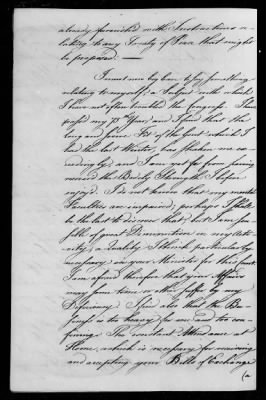 already furnished with Instructions re-
lating to any Treaty of Peace that might
be proposed. —
I must now beg leave to say something
relating to myself; a Subject with which
I have not often troubled the Congress. I have
pass'd my 75th Year, and I find that the
long and severe Fit of the Gout which I
had the last Winter, has shaken me ex-
ceedingly, and I am yet far from having
recover'd the Bodily Strength I before
enjoy'd. I do not know that my mental
Faculties are impaired; perhaps I shall
be the last to discover that; but I am sen-
sible of great Diminution in my Acti-
vity, a Quality I think particularly
necessary in your Minister for this Court.
I am afraid therefore that your Affairs
may some time or other suffer by my
Deficiency. I find also that the Bu-
siness is too heavy for me, and too con-
fining. The constant Attendance at
Home, which is necessary for receiving
and accepting your Bills of Exchange
(a